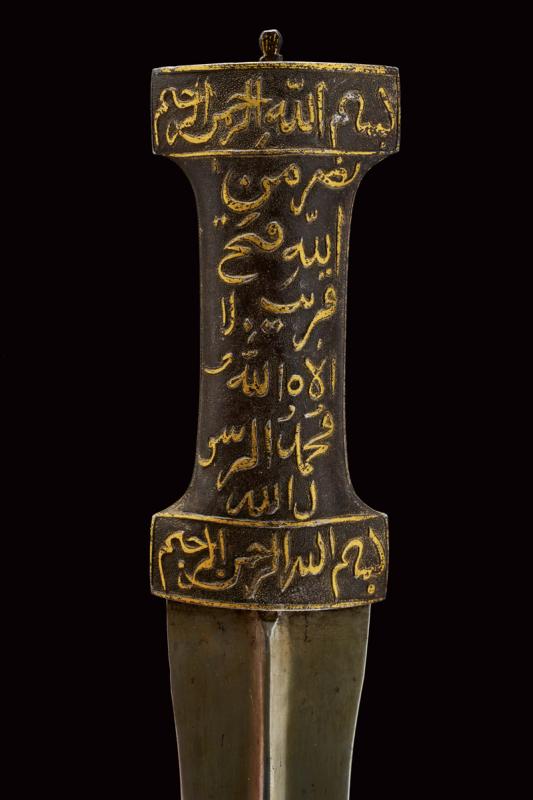 بسم الله الرحمن الرحیم
نصر من
الله فتح
قریب لا
الاه الله
محمد الرسو
ل الله
بسم الله الرحمن الرحیم